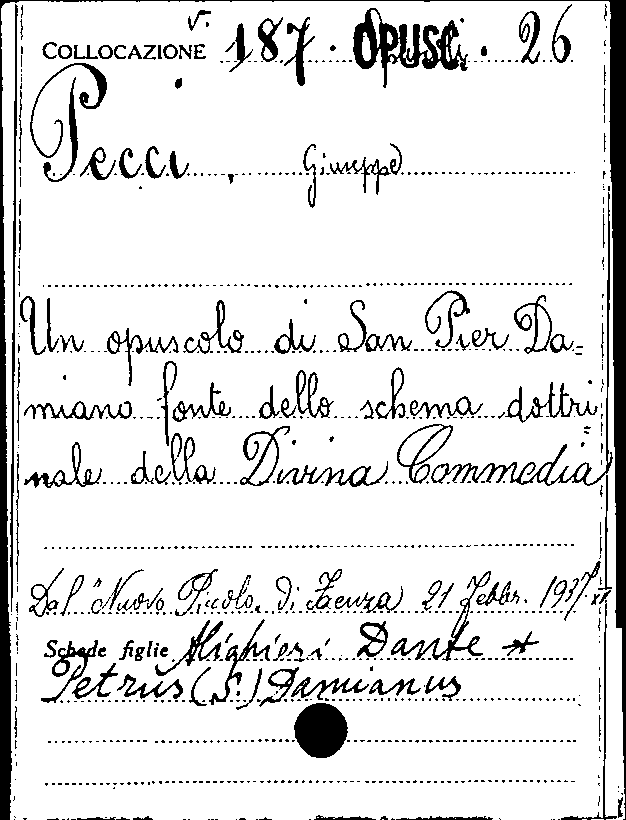 v.
COLLOCAZIONE 187. OPUSC. 26
Pecci, Giuseppe
Un opuscolo di San Pier Da=
miano fonte dello schema dottri=
nale della Divina Commedia
Dal "Nuovo Piccolo" di Faenza 21 Febbr. 1937.
Schede figlie Alighieri Dante *
Petrus (S.) Damianus